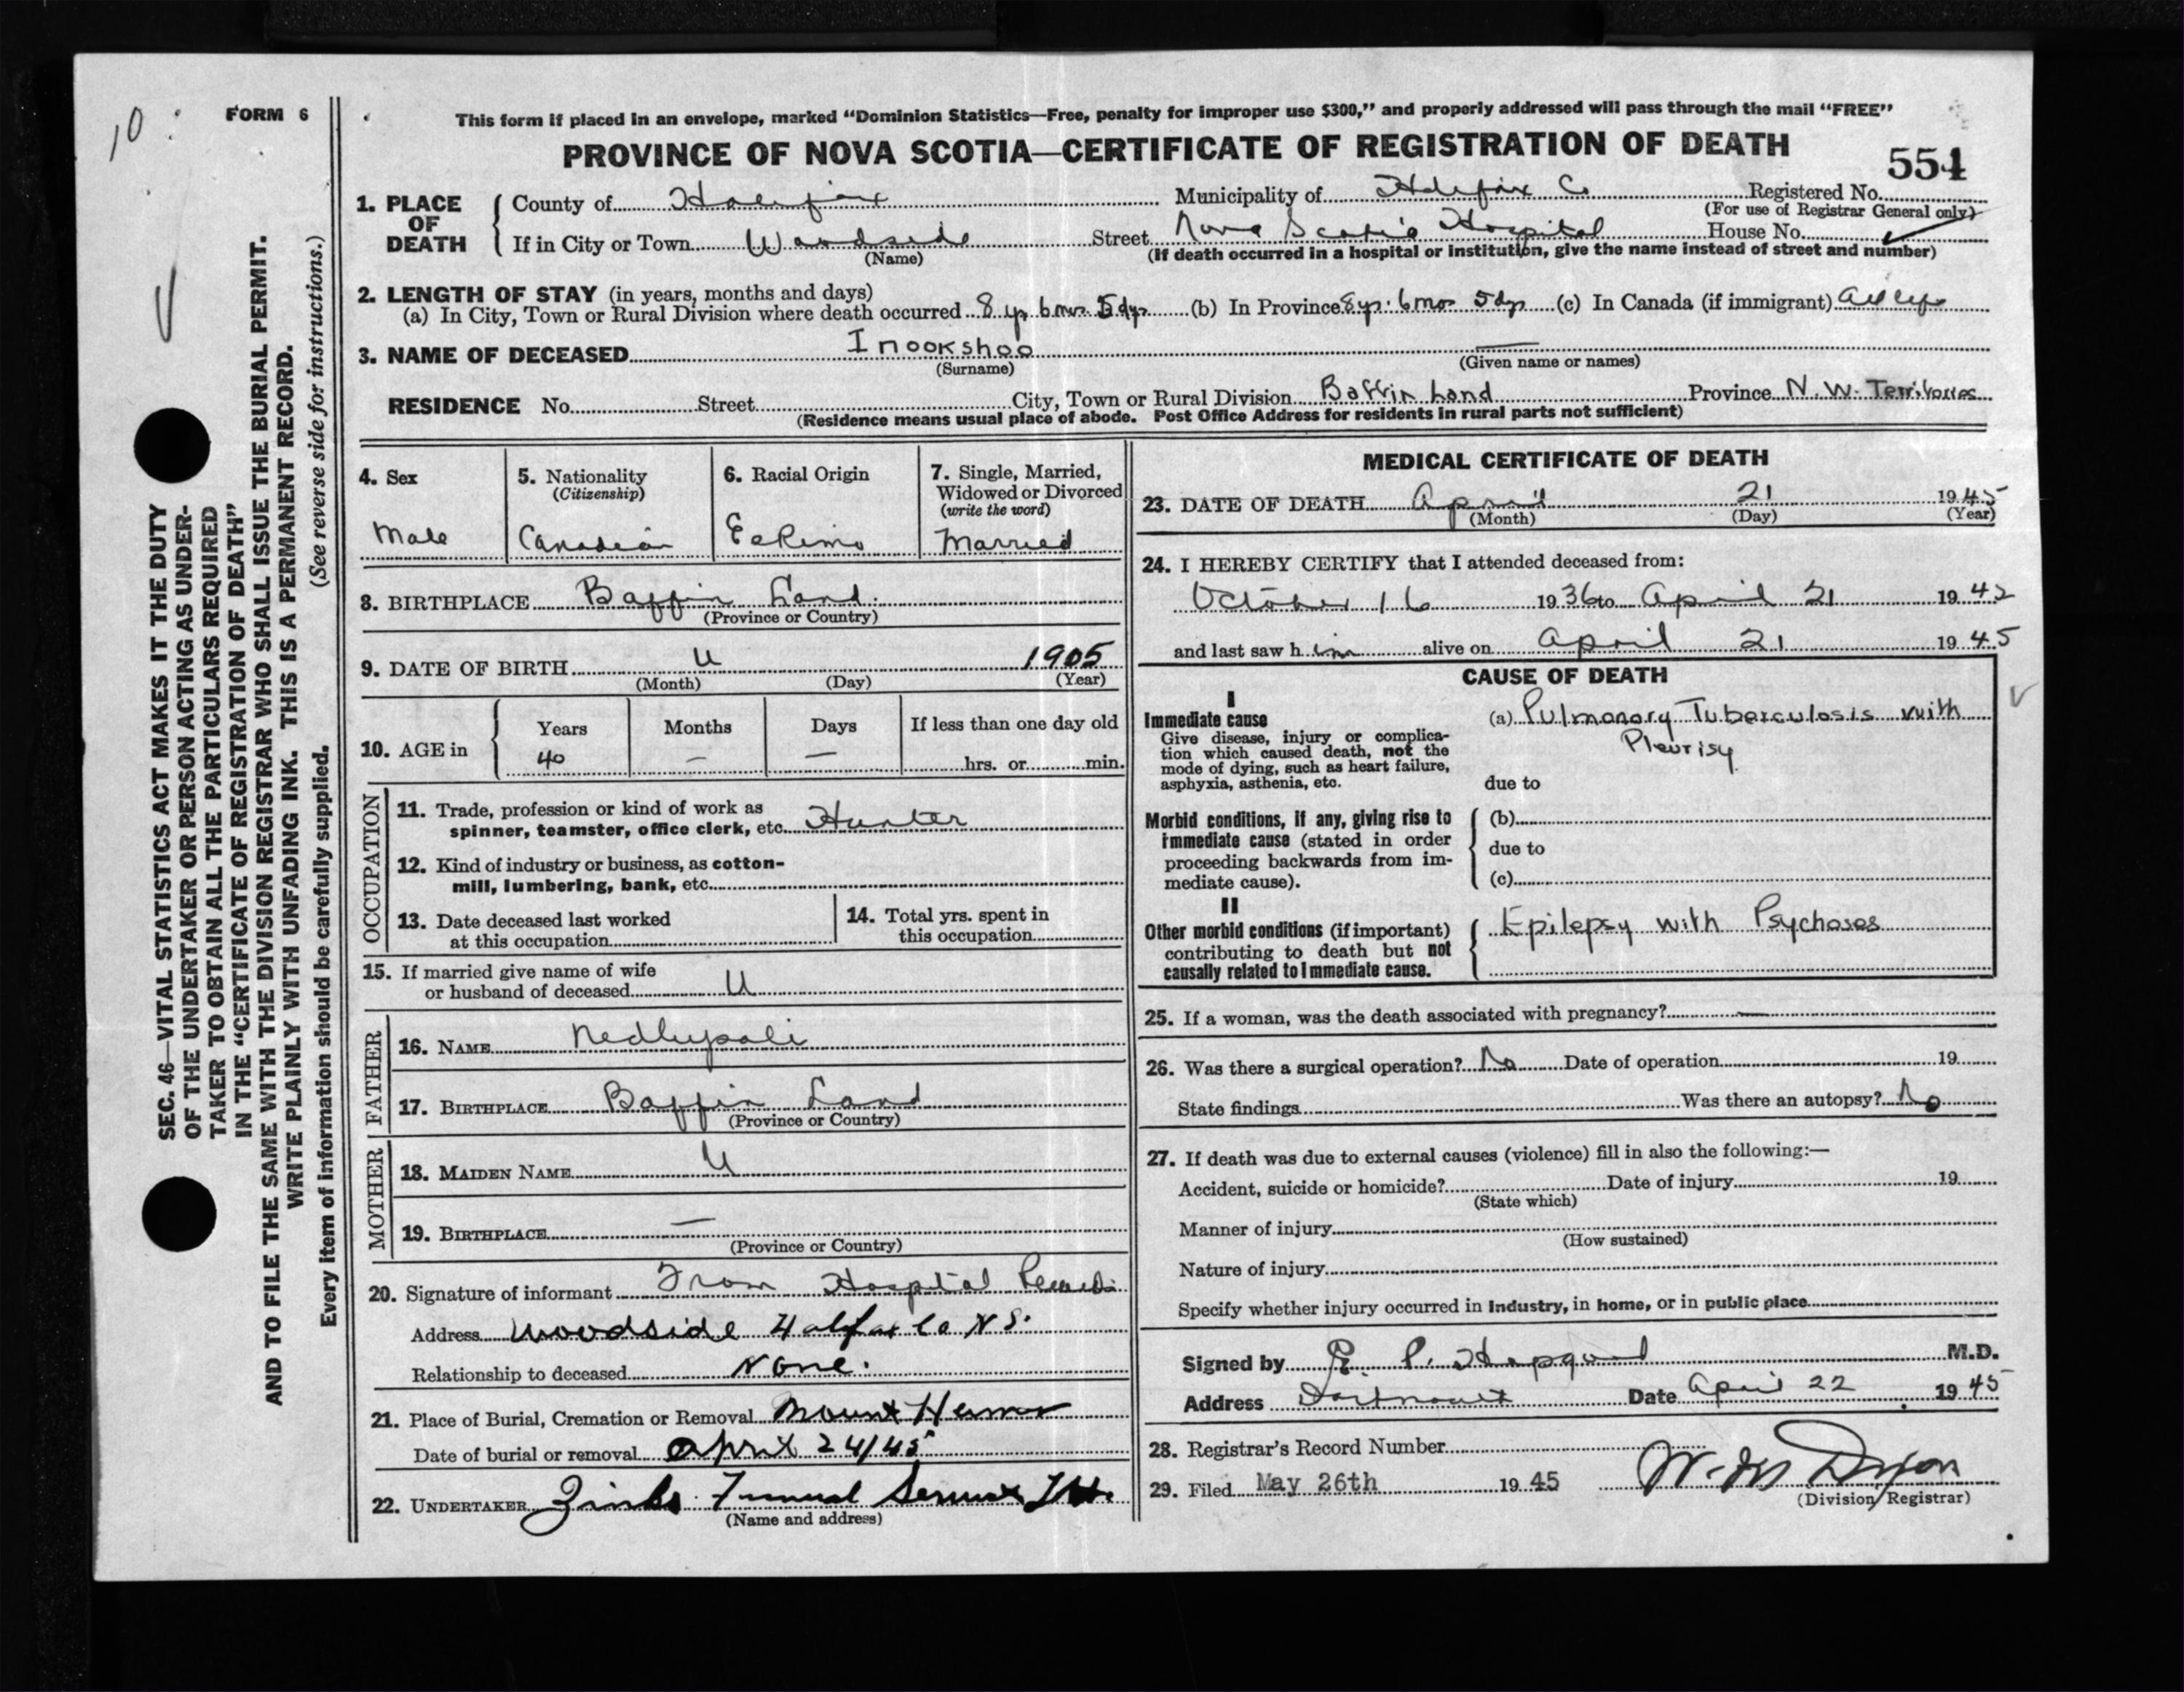 10
FORM 6
This form if placed in an envelope, marked "Dominion Statistics—Free, penalty for improper use $300," and properly addressed will pass through the mail "FREE"
PROVINCE OF NOVA SCOTIA—CERTIFICATE OF REGISTRATION OF DEATH
554
1. PLACE OF DEATH
County of Halifax
Municipality of Halifax Co
Registered No.
(For use of Registrar General only)
If in City or Town Woodside
(Name)
Street Nova Scotia Hospital
House No.
(If death occurred in a hospital or institution, give the name instead of street and number)
2. LENGTH OF STAY (in years, months and days)
(a) In City, Town or Rural Division where death occurred 8 yr 6 mos 5 dys (b) In Province 8 yr. 6 mos 5 dys (c) In Canada (if immigrant) all life
3. NAME OF DECEASED Inookshoo —
(Surname) (Given name or names)
RESIDENCE No. Street City, Town or Rural Division Baffin Land Province N. W. Territories
(Residence means usual place of abode. Post Office Address for residents in rural parts not sufficient)
4. Sex
Male
5. Nationality
(Citizenship)
Canadian
6. Racial Origin
Eskimo
7. Single, Married,
Widowed or Divorced
(write the word)
Married
8. BIRTHPLACE Baffin Land.
(Province or Country)
9. DATE OF BIRTH U 1905
(Month) (Day) (Year)
10. AGE in
Years Months Days If less than one day old
40 — — hrs. or min.
OCCUPATION
11. Trade, profession or kind of work as
spinner, teamster, office clerk, etc. Hunter
12. Kind of industry or business, as cotton-
mill, lumbering, bank, etc.
13. Date deceased last worked
at this occupation
14. Total yrs. spent in
this occupation
15. If married give name of wife
or husband of deceased U
FATHER
16. NAME Nedlupali
17. BIRTHPLACE Baffin Land
(Province or Country)
MOTHER
18. MAIDEN NAME U
19. BIRTHPLACE —
(Province or Country)
20. Signature of informant From Hospital Records
Address Woodside Halifax Co N S.
Relationship to deceased None.
21. Place of Burial, Cremation or Removal Mount Hermon
Date of burial or removal April 24/45
22. UNDERTAKER Zinks Funeral Service
(Name and address)
MEDICAL CERTIFICATE OF DEATH
23. DATE OF DEATH April 21 1945
(Month) (Day) (Year)
24. I HEREBY CERTIFY that I attended deceased from:
October 16 1936 to April 21 1942
and last saw him alive on April 21 1945
CAUSE OF DEATH
I
Immediate cause
Give disease, injury or complica-
tion which caused death, not the
mode of dying, such as heart failure,
asphyxia, asthenia, etc.
(a) Pulmonary Tuberculosis with
Pleurisy
due to
Morbid conditions, if any, giving rise to
immediate cause (stated in order
proceeding backwards from im-
mediate cause).
(b)
due to
(c)
II
Other morbid conditions (if important)
contributing to death but not
causally related to immediate cause.
Epilepsy with Psychoses
25. If a woman, was the death associated with pregnancy? —
26. Was there a surgical operation? No Date of operation 19
State findings Was there an autopsy? No
27. If death was due to external causes (violence) fill in also the following:—
Accident, suicide or homicide? Date of injury 19
(State which)
Manner of injury
(How sustained)
Nature of injury
Specify whether injury occurred in industry, in home, or in public place
Signed by E. P. Hopgood M.D.
Address Dartmouth Date April 22 1945
28. Registrar's Record Number
29. Filed May 26th 1945
(Division Registrar)
SEC. 46—VITAL STATISTICS ACT MAKES IT THE DUTY
OF THE UNDERTAKER OR PERSON ACTING AS UNDER-
TAKER TO OBTAIN ALL THE PARTICULARS REQUIRED
IN THE "CERTIFICATE OF REGISTRATION OF DEATH"
AND TO FILE THE SAME WITH THE DIVISION REGISTRAR WHO SHALL ISSUE THE BURIAL PERMIT.
WRITE PLAINLY WITH UNFADING INK. THIS IS A PERMANENT RECORD.
(See reverse side for instructions.)
Every item of information should be carefully supplied.